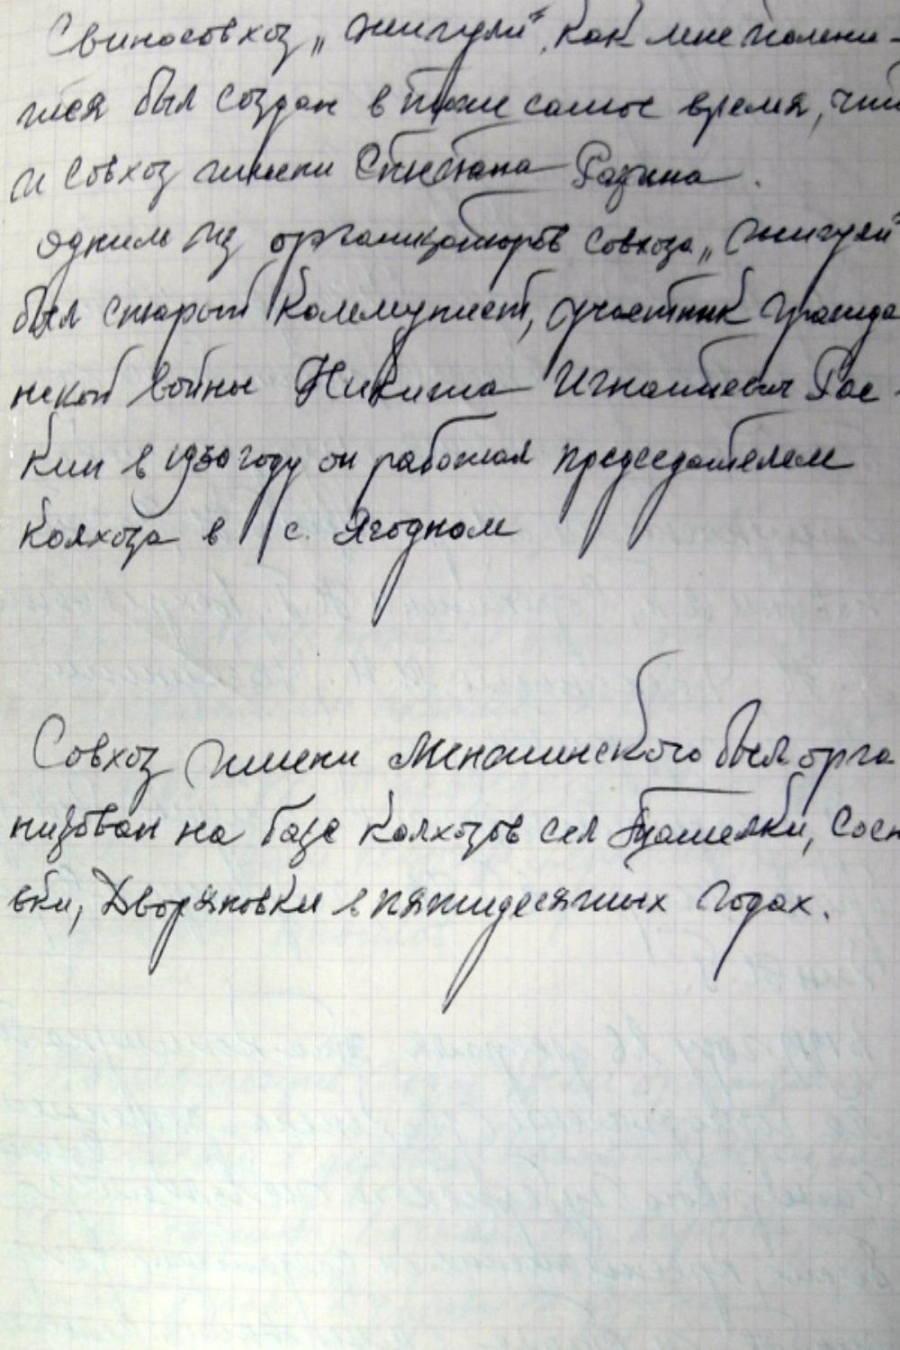 Свиносовхоз „Жигули", как мне помни-
тся был создан в тоже самое время, что
и совхоз имени Степана Разина.
одним из организаторов совхоза „Жигули"
был старый коммунист, участник гражда
нской войны Никита Игнатьевич Рас-
кин в 1930 году он работал председателем
колхоза в с. Ягодном
Совхоз имени Менжинского был орга
низован на базе колхозов сел Ташелки, Сосн
вки, Дворяновки в пятидесятых годах.